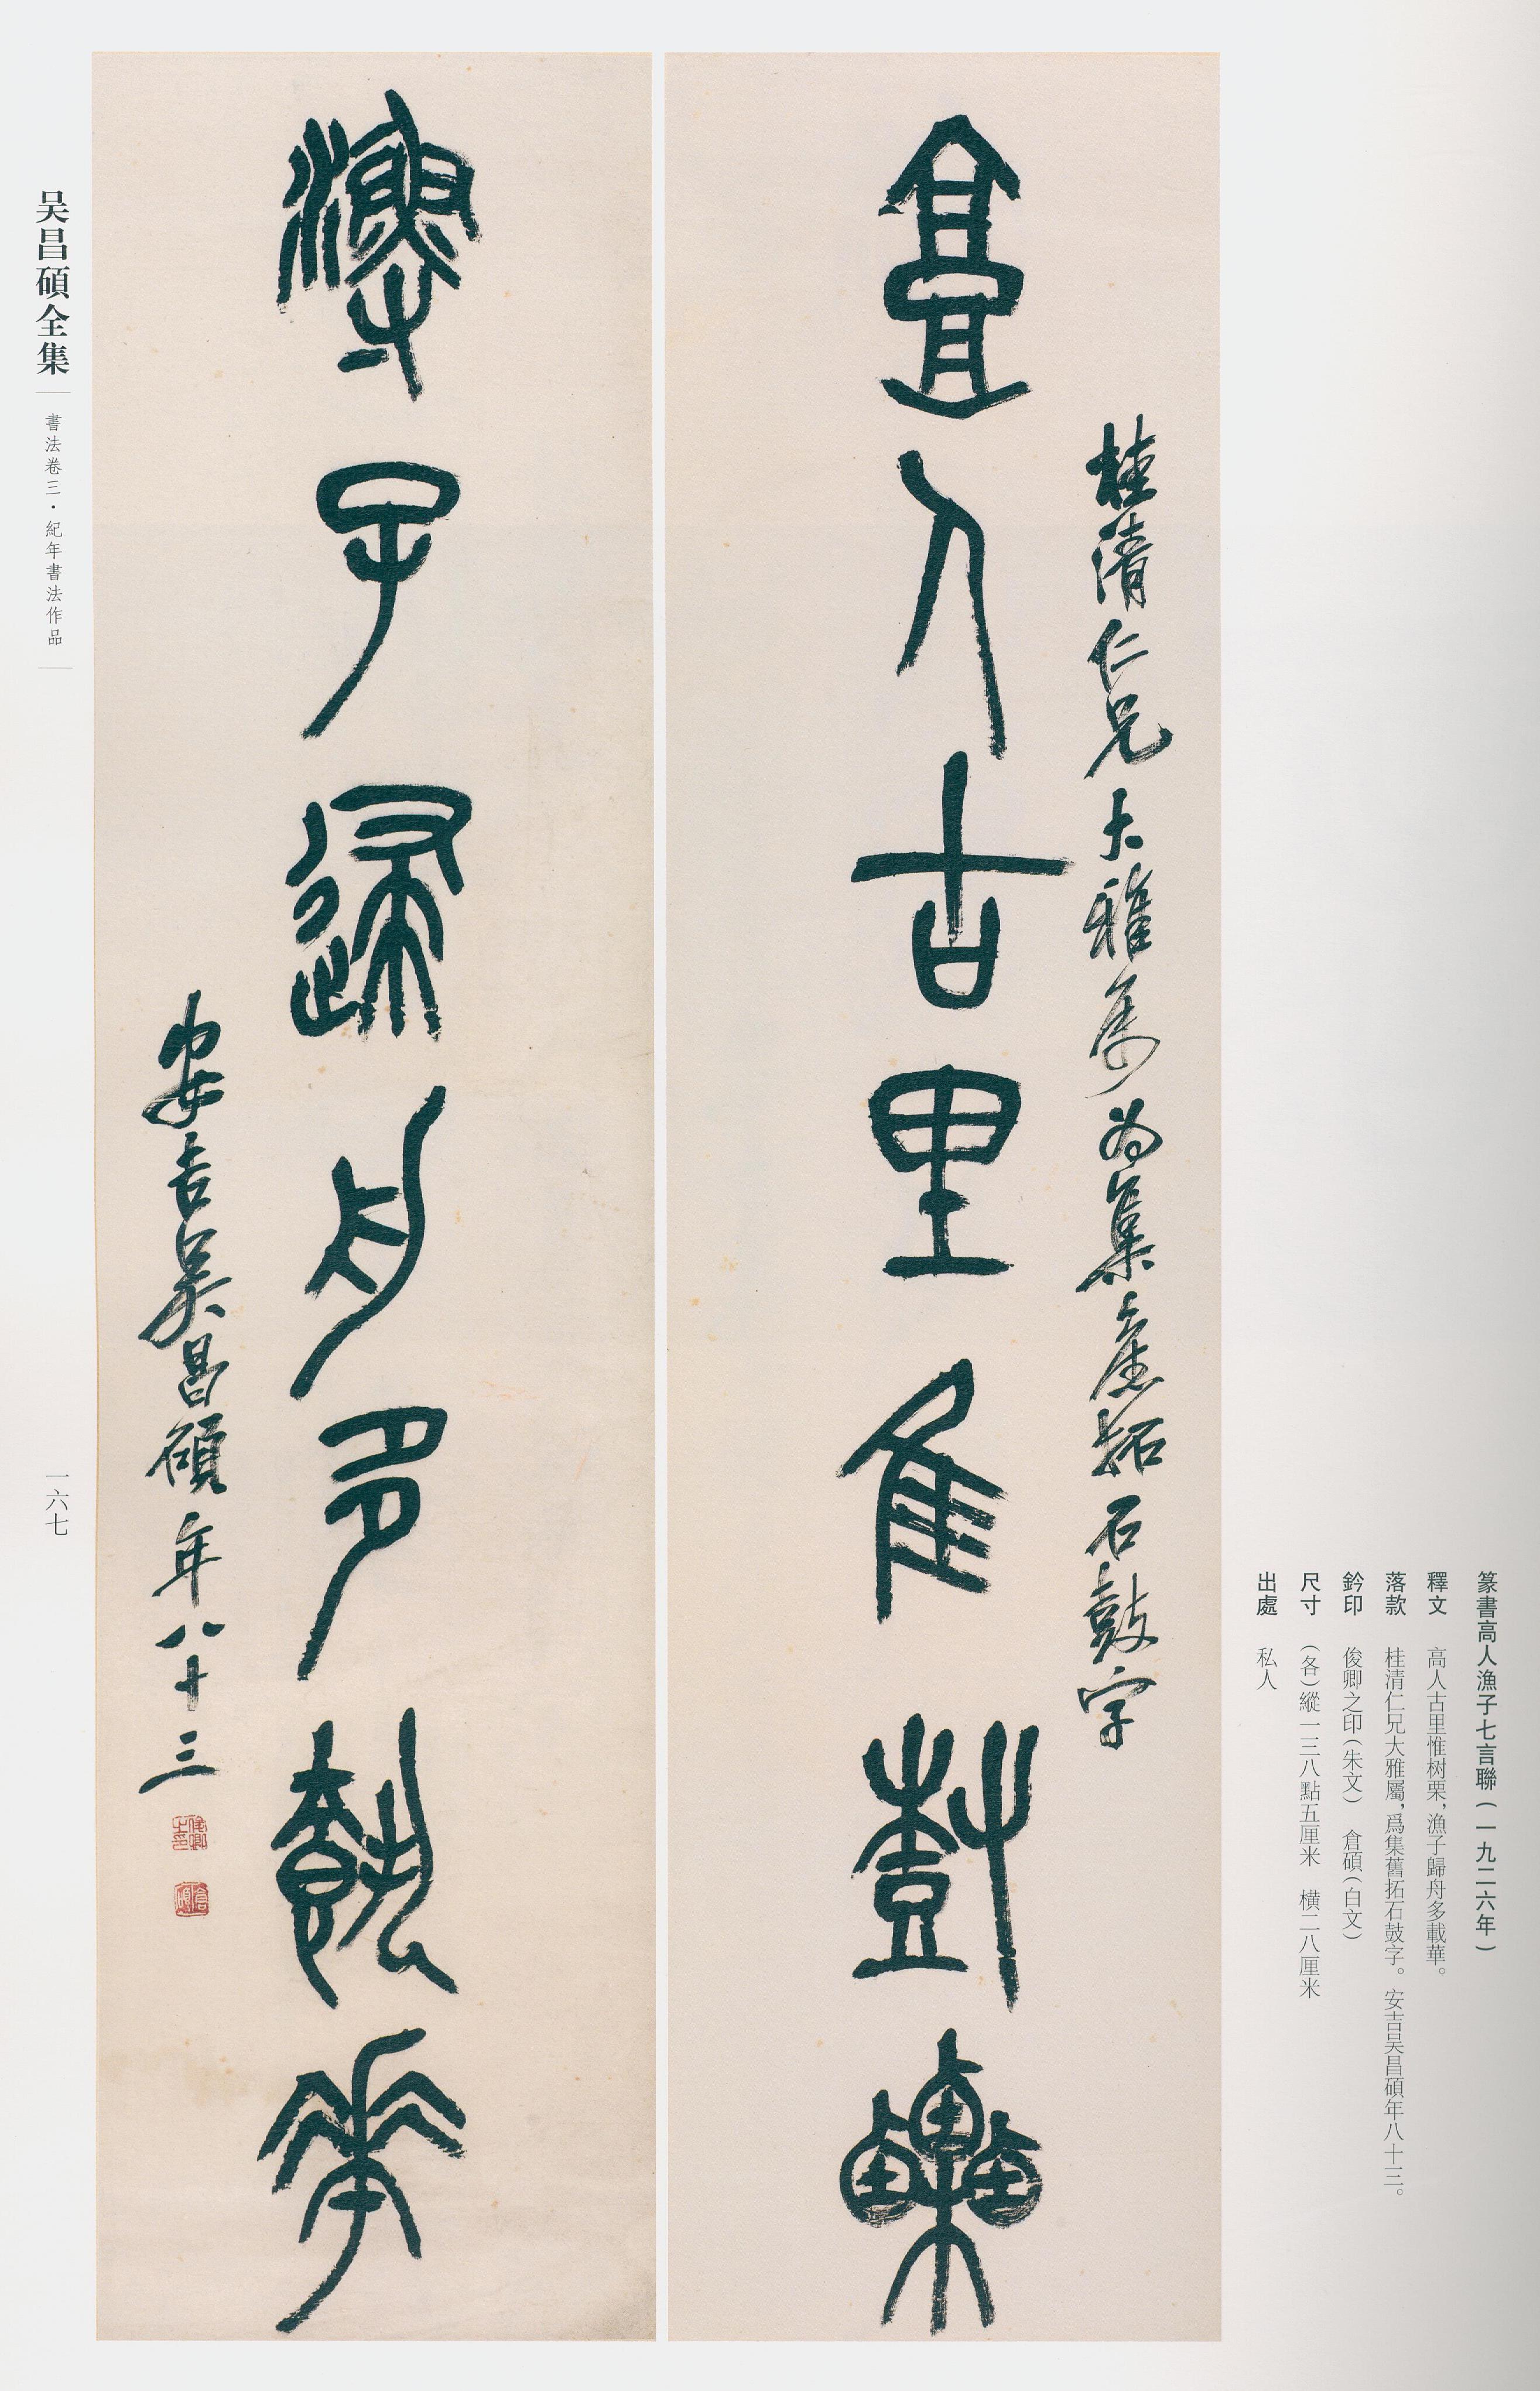 篆書高人漁子七言聯（一九二六年）
釋文　高人古里惟树栗，漁子歸舟多載華。
落款　桂清仁兄大雅屬，爲集舊拓石鼓字。安吉吴昌碩年八十三。
鈐印　俊卿之印（朱文）　倉碩（白文）
尺寸　（各）縱一三八點五厘米　横二八厘米
出處　私人
桂清仁兄大雅属为集舊拓石鼓字
高人古里隹樹栗
漁子歸舟多載華
安吉吴昌碩年八十三
俊卿之印
倉碩
吴昌碩全集
書法卷三·紀年書法作品
一六七